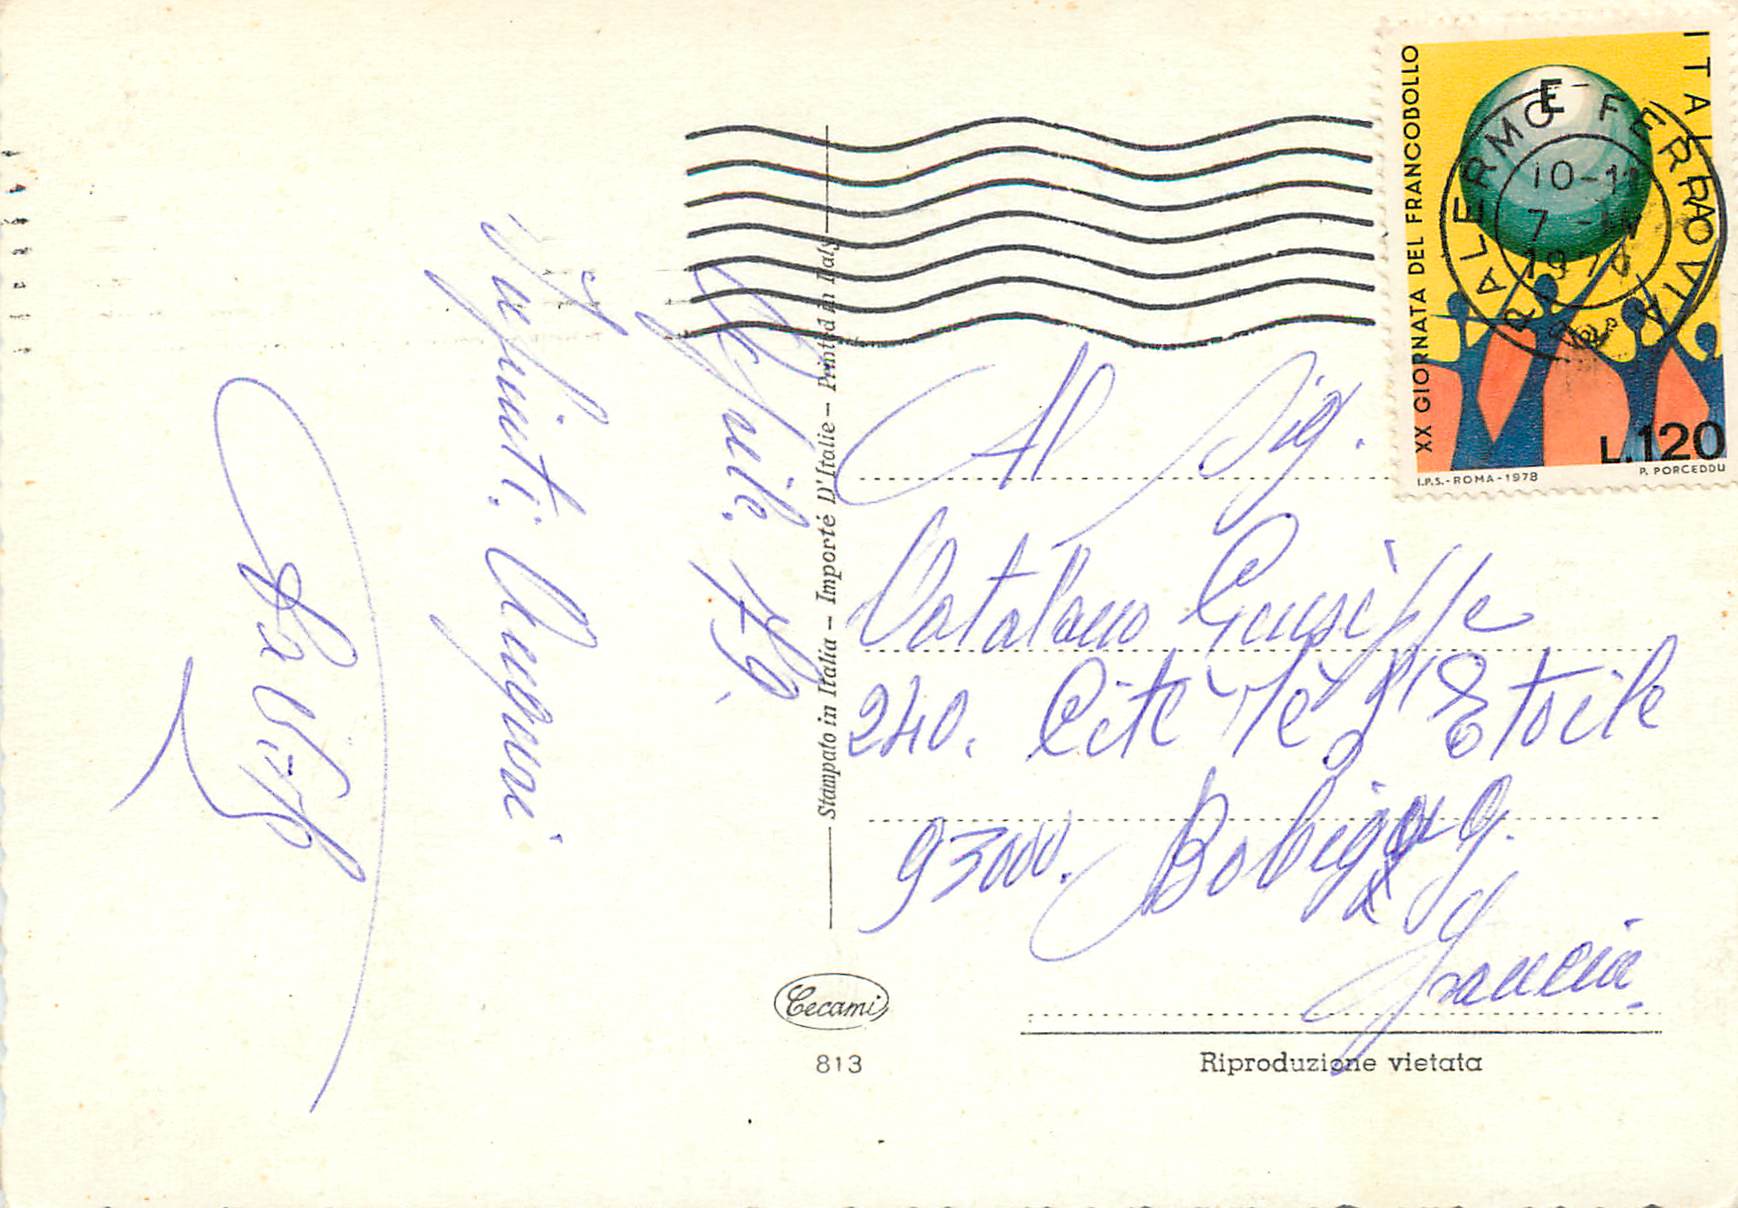 Aprile 79.
Infiniti Auguri
De Vito
Stampato in Italia – Importé D'Italie – Printed in Italy
Al Sig.
Catalano Giuseppe
240. Cité de l'Etoile
93000. Bobigny.
Francia.
Cecami
813
Riproduzione vietata
ITALIA
XX GIORNATA DEL FRANCOBOLLO
L.120
I.P.S.-ROMA-1978
P. PORCEDDU
PALERMO FERROVIA
E
10-11
7 -IV
1979